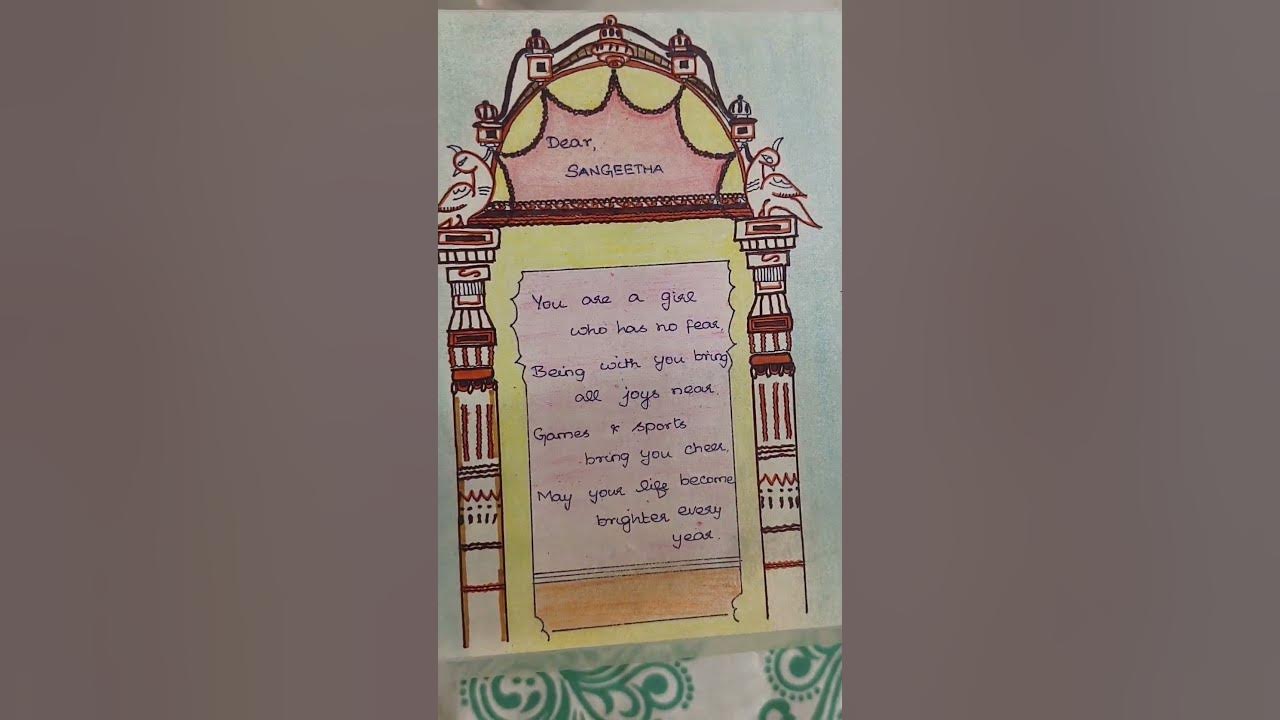 Dear,
SANGEETHA
You are a girl
who has no fear,
Being with you bring
all joys near.
Games & sports
bring you cheer,
May your life become
brighter every
year.